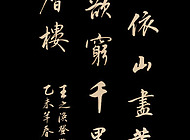 依山盡黃
欲窮千里
層樓
王之渙登
乙未年春